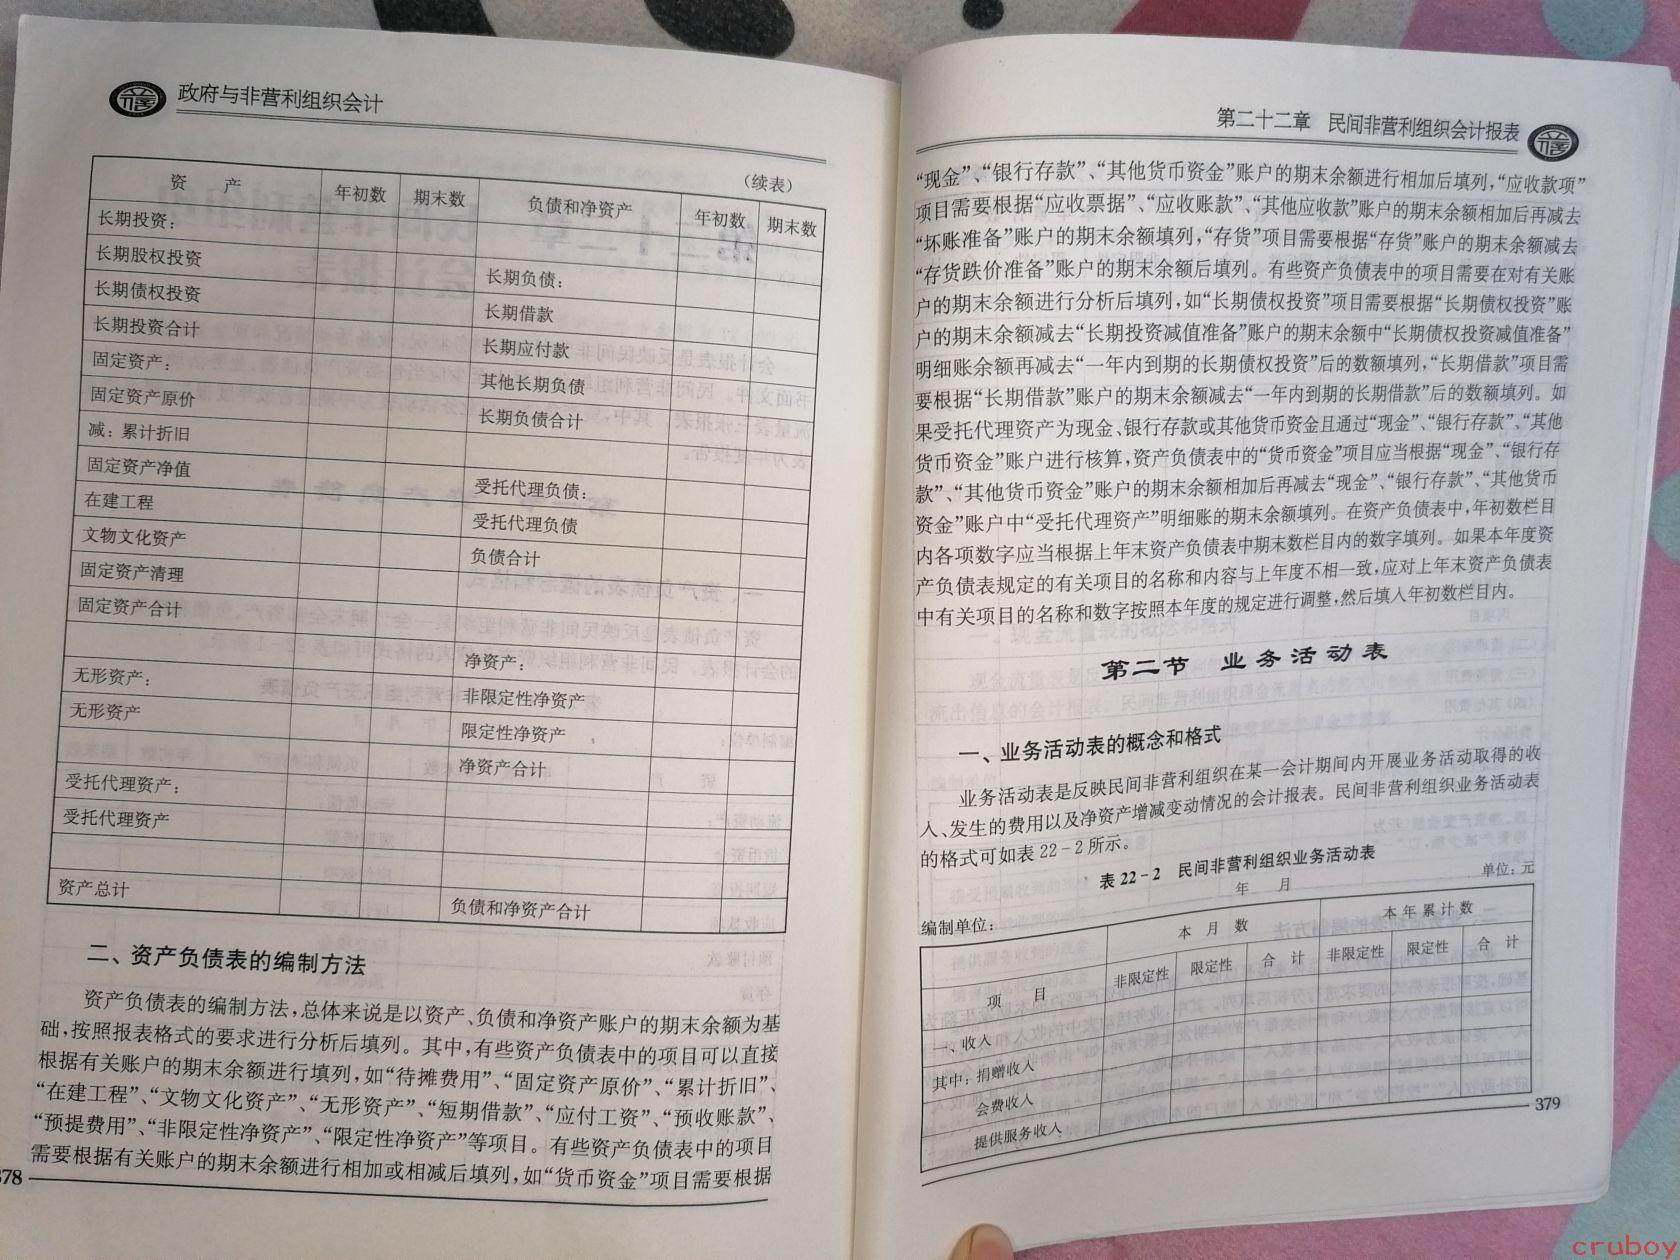 政府与非营利组织会计
(续表)
资 产 年初数 期末数 负债和净资产 年初数 期末数
长期投资：
长期股权投资 长期负债：
长期债权投资 长期借款
长期投资合计 长期应付款
固定资产： 其他长期负债
固定资产原价 长期负债合计
减：累计折旧
固定资产净值 受托代理负债：
在建工程 受托代理负债
文物文化资产 负债合计
固定资产清理
固定资产合计
净资产：
无形资产： 非限定性净资产
无形资产 限定性净资产
净资产合计
受托代理资产：
受托代理资产
资产总计 负债和净资产合计
二、资产负债表的编制方法
资产负债表的编制方法,总体来说是以资产、负债和净资产账户的期末余额为基
础,按照报表格式的要求进行分析后填列。其中,有些资产负债表中的项目可以直接
根据有关账户的期末余额进行填列,如“待摊费用”、“固定资产原价”、“累计折旧”、
“在建工程”、“文物文化资产”、“无形资产”、“短期借款”、“应付工资”、“预收账款”、
“预提费用”、“非限定性净资产”、“限定性净资产”等项目。有些资产负债表中的项目
需要根据有关账户的期末余额进行相加或相减后填列,如“货币资金”项目需要根据
378
第二十二章 民间非营利组织会计报表
“现金”、“银行存款”、“其他货币资金”账户的期末余额进行相加后填列,“应收款项”
项目需要根据“应收票据”、“应收账款”、“其他应收款”账户的期末余额相加后再减去
“坏账准备”账户的期末余额填列,“存货”项目需要根据“存货”账户的期末余额减去
“存货跌价准备”账户的期末余额后填列。有些资产负债表中的项目需要在对有关账
户的期末余额进行分析后填列,如“长期债权投资”项目需要根据“长期债权投资”账
户的期末余额减去“长期投资减值准备”账户的期末余额中“长期债权投资减值准备”
明细账余额再减去“一年内到期的长期债权投资”后的数额填列,“长期借款”项目需
要根据“长期借款”账户的期末余额减去“一年内到期的长期借款”后的数额填列。如
果受托代理资产为现金、银行存款或其他货币资金且通过“现金”、“银行存款”、“其他
货币资金”账户进行核算,资产负债表中的“货币资金”项目应当根据“现金”、“银行存
款”、“其他货币资金”账户的期末余额相加后再减去“现金”、“银行存款”、“其他货币
资金”账户中“受托代理资产”明细账的期末余额填列。在资产负债表中,年初数栏目
内各项数字应当根据上年末资产负债表中期末数栏目内的数字填列。如果本年度资
产负债表规定的有关项目的名称和内容与上年度不相一致,应对上年末资产负债表
中有关项目的名称和数字按照本年度的规定进行调整,然后填入年初数栏目内。
第二节 业务活动表
一、业务活动表的概念和格式
业务活动表是反映民间非营利组织在某一会计期间内开展业务活动取得的收
入、发生的费用以及净资产增减变动情况的会计报表。民间非营利组织业务活动表
的格式可如表 22-2 所示。
表 22-2 民间非营利组织业务活动表
编制单位： 年 月 单位：元
项 目 本 月 数 本 年 累 计 数
非限定性 限定性 合 计 非限定性 限定性 合 计
一、收入
其中：捐赠收入
会费收入
提供服务收入
379
cruboy